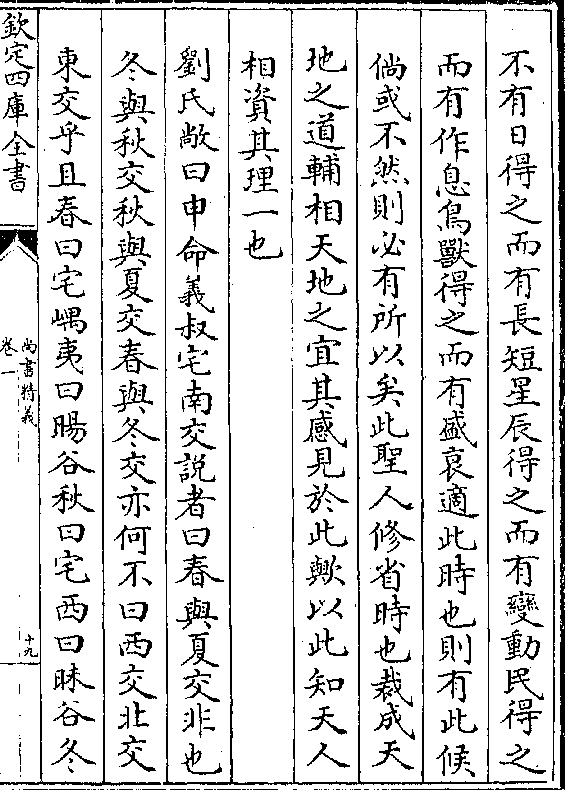 不有日得之而有長短星辰得之而有變動民得之
而有作息鳥獸得之而有盛衰適此時也則有此候
倘或不然則必有所以矣此聖人修省時也裁成天
地之道輔相天地之宜其感見於此歟以此知天人
相資其理一也
劉氏敞曰申命羲叔宅南交説者曰春與夏交非也
冬與秋交秋與夏交春與冬交亦何不曰西交北交
東交乎且春曰宅嵎夷曰暘谷秋曰宅西曰昧谷冬
欽定四庫全書
尚書精義
卷一
十九